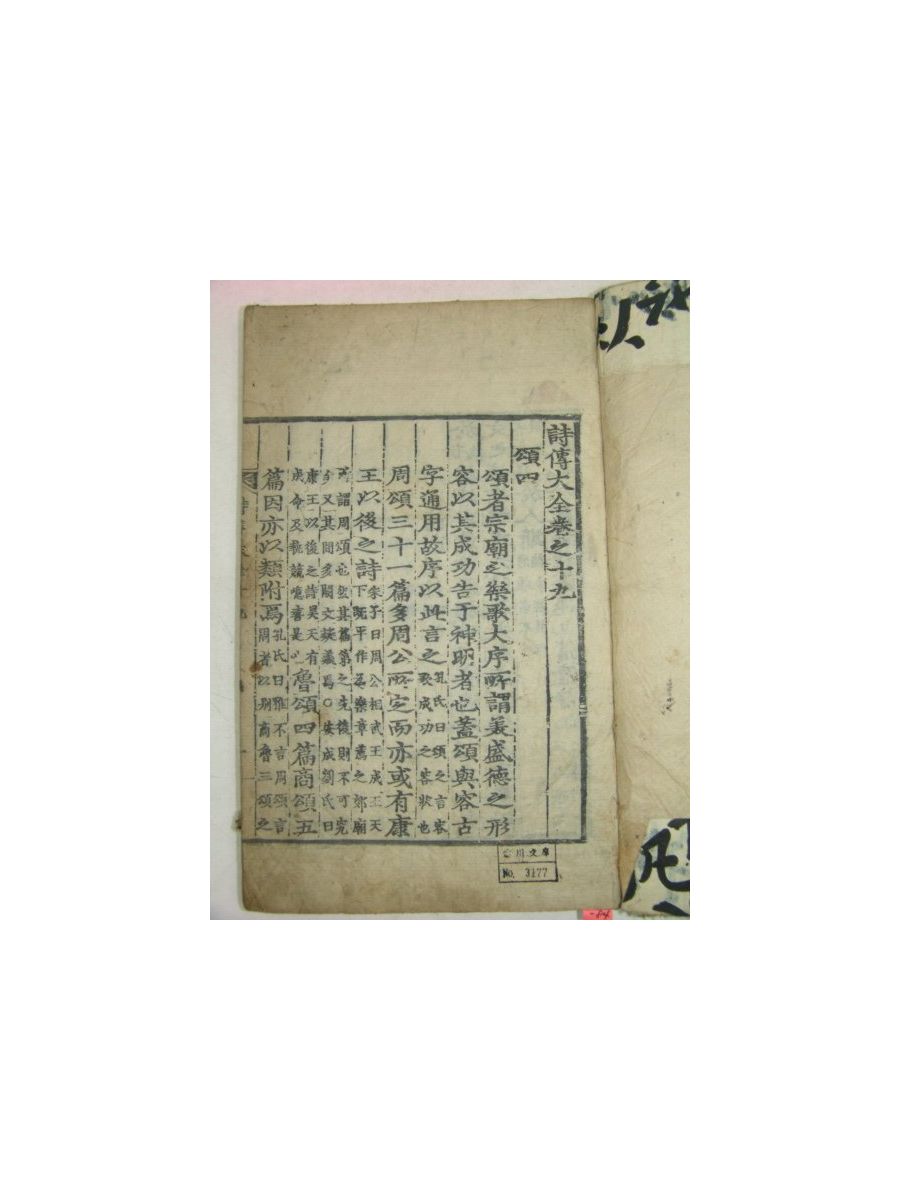 詩傳大全卷之十九
頌四
頌者宗廟之樂歌大序所謂美盛德之形
容以其成功告于神明者也蓋頌與容古
字通用故序以此言之孔氏曰頌之言容歌成功之容狀也
周頌三十一篇多周公所定而亦或有康
王以後之詩朱子曰周公相武王成王天下既平作爲樂章薦之郊廟
所謂周頌也然其篇第之先後則不可究矣又其間多闕文疑義焉○安成劉氏曰
康王以後之詩昊天有成命及執競噫嘻是也魯頌四篇商頌五
篇因亦以類附焉孔氏曰雅不言周頌言周者以別商魯三頌之
文庫
No. 3177